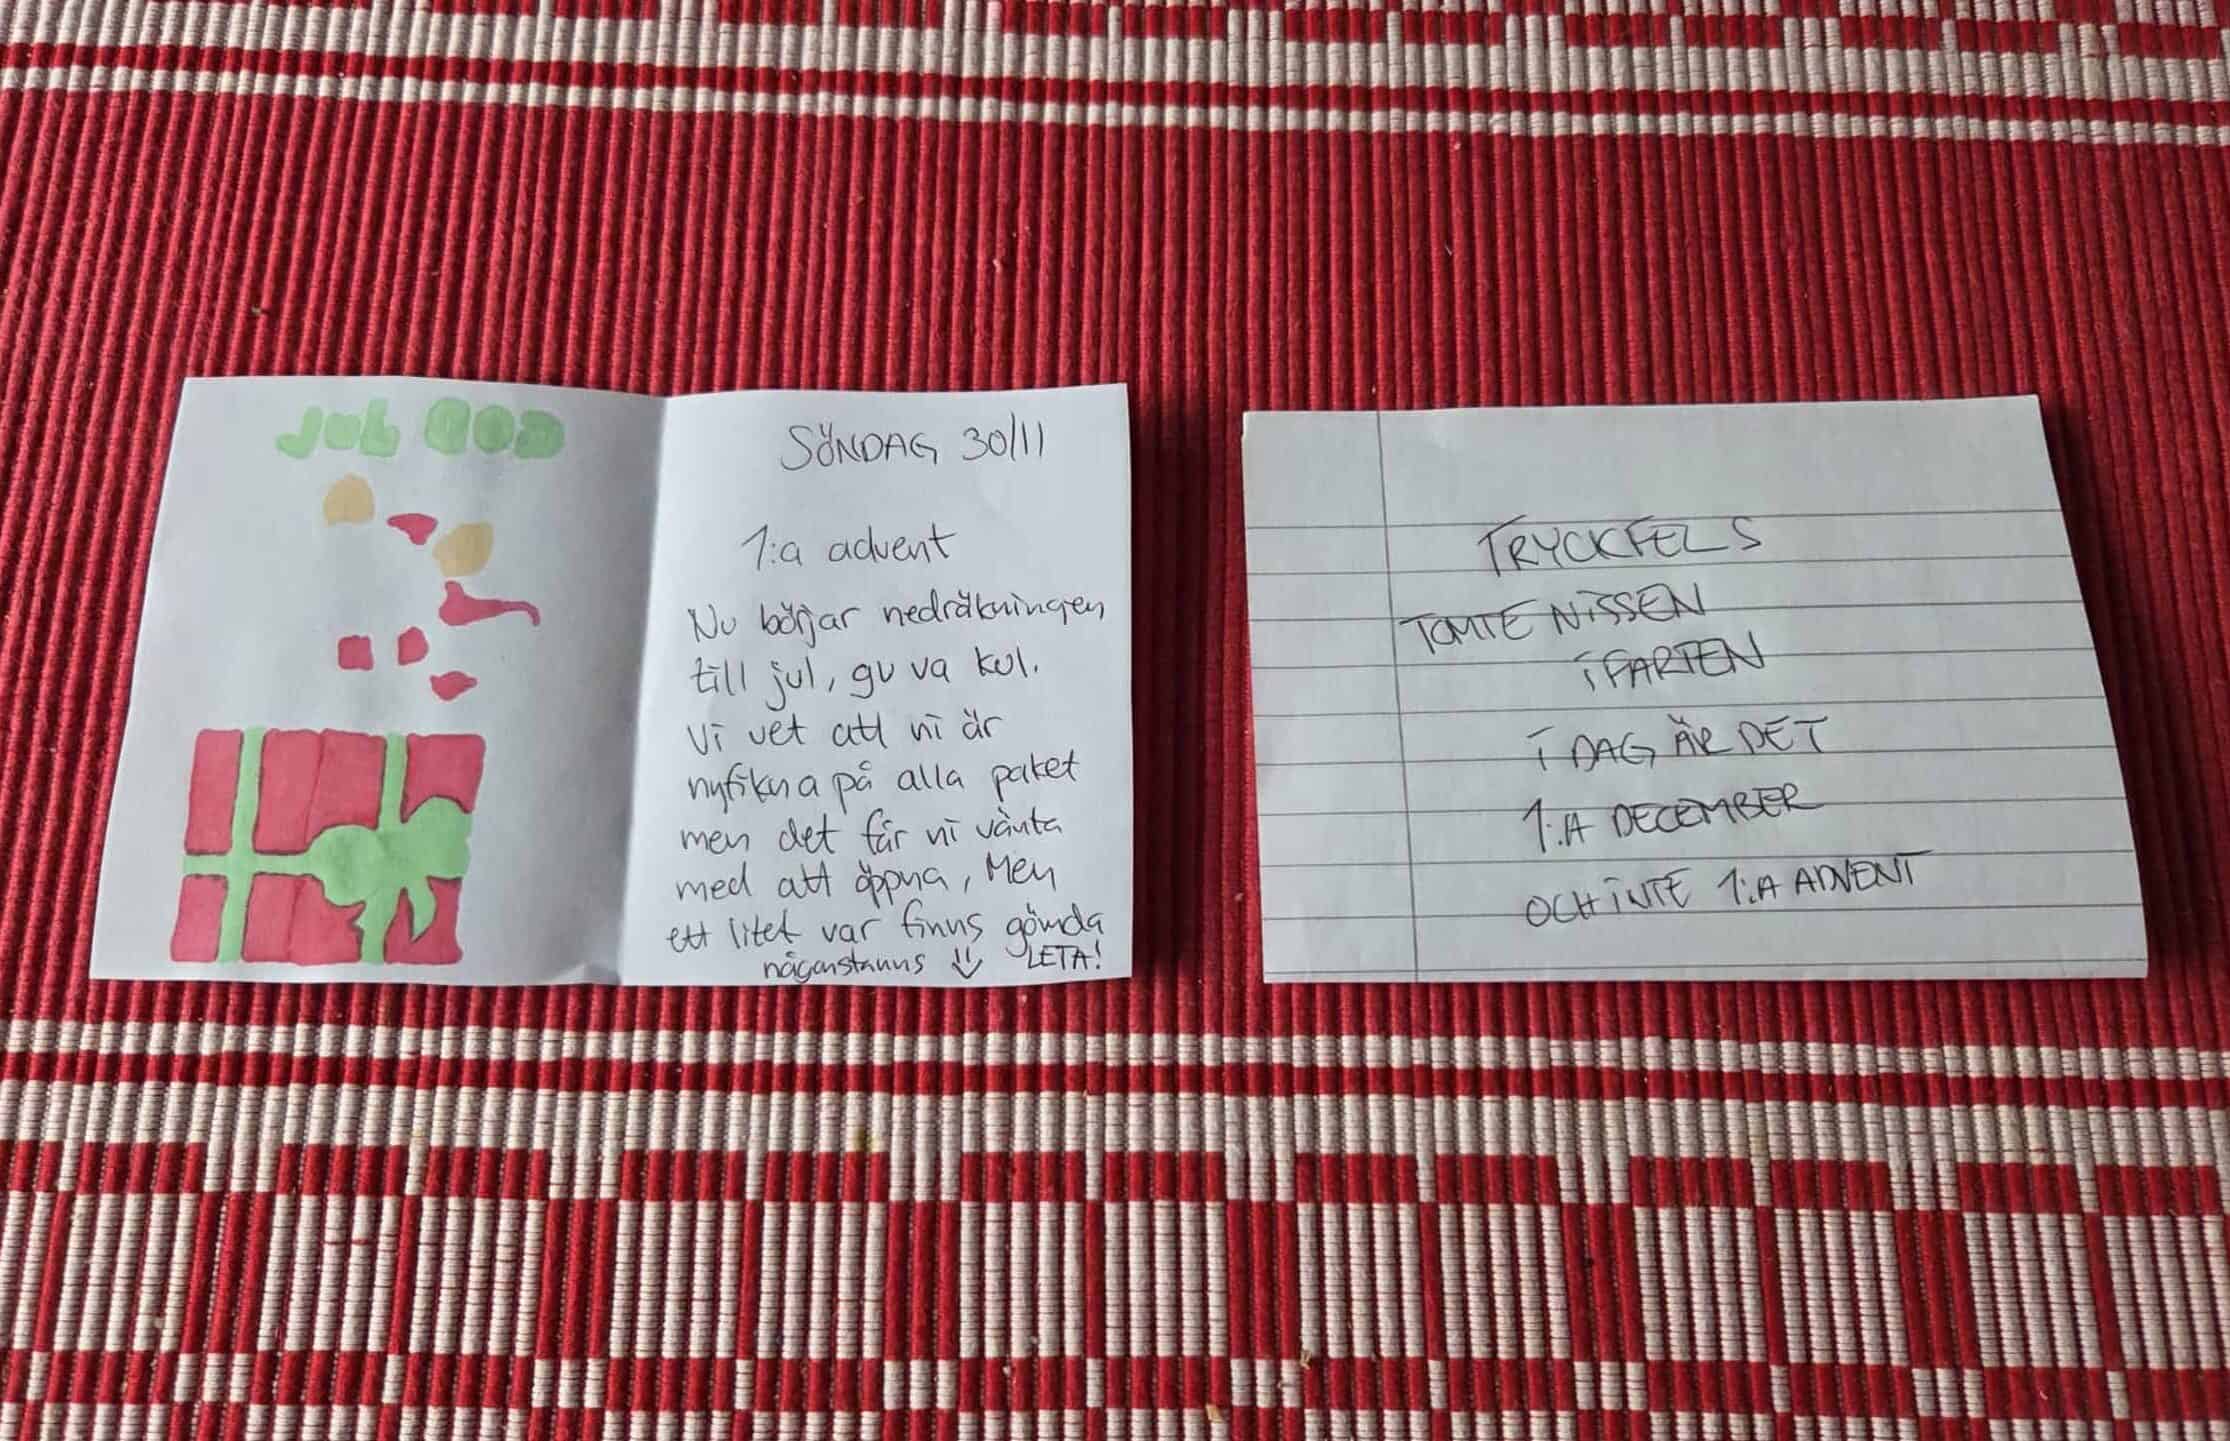 JUL GOD
SÖNDAG 30/11
1:a advent
Nu börjar nedräkningen
till jul, gu va kul.
Vi vet att ni är
nyfikna på alla paket
men det får ni vänta
med att öppna, Men
ett litet var finns gömda
någonstanns LETA!
TRYCKFELS
TOMTENISSEN
i FARTEN
i DAG ÄR DET
1:A DECEMBER
OCH iNTE 1:A ADVENT